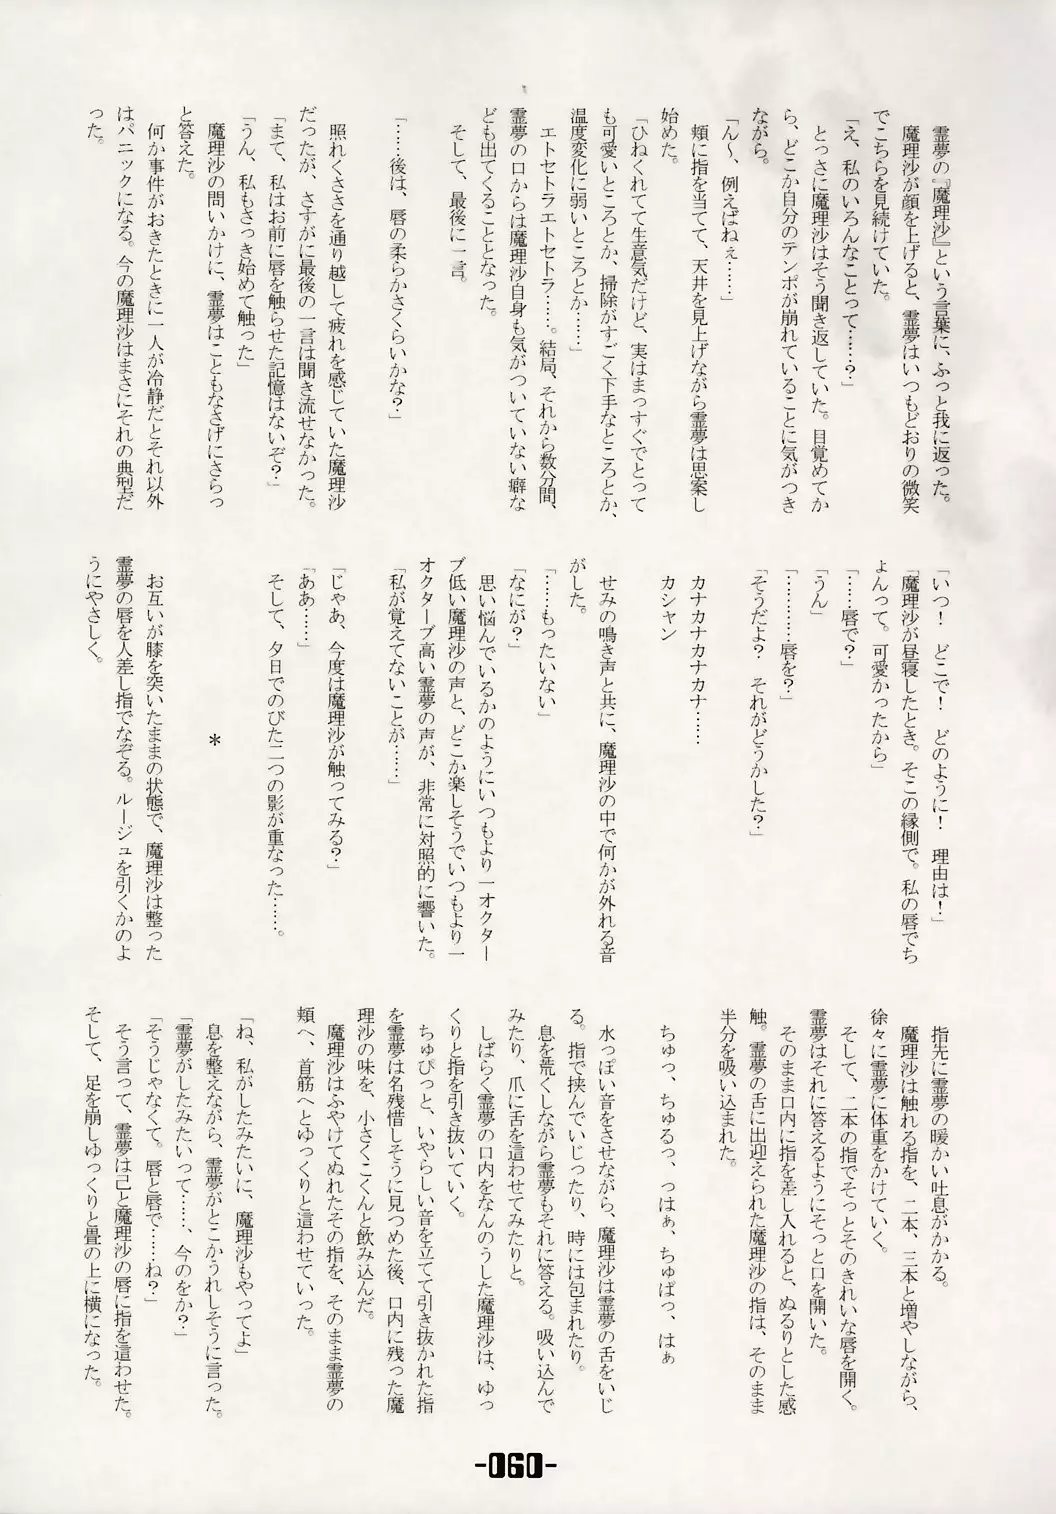 霊夢の『魔理沙』という言葉に、ふっと我に返った。
魔理沙が顔を上げると、霊夢はいつもどおりの微笑
でこちらを見続けていた。
「え、私のいろんなことって………？」
とっさに魔理沙はそう聞き返していた。目覚めてか
ら、どこか自分のテンポが崩れていることに気がつき
ながら。
「ん～、例えばねぇ……」
頬に指を当てて、天井を見上げながら霊夢は思案し
始めた。
「ひねくれてて生意気だけど、実はまっすぐでとって
も可愛いところとか、掃除がすごく下手なところとか、
温度変化に弱いところとか……」
エトセトラエトセトラ……。結局、それから数分間、
霊夢の口からは魔理沙自身も気がついていない癖な
ども出てくることとなった。
そして、最後に一言。
「……後は、唇の柔らかさくらいかな？」
照れくささを通り越して疲れを感じていた魔理沙
だったが、さすがに最後の一言は聞き流せなかった。
「まて、私はお前に唇を触らせた記憶はないぞ？」
「うん、私もさっき始めて触った」
魔理沙の問いかけに、霊夢はこともなさげにさらっ
と答えた。
何か事件がおきたときに一人が冷静だとそれ以外
はパニックになる。今の魔理沙はまさにそれの典型だ
った。
「いつ！　どこで！　どのように！　理由は！」
「魔理沙が昼寝したとき。そこの縁側で。私の唇でち
ょんって。可愛かったから」
「……唇で？」
「うん」
「…………唇を？」
「そうだよ？　それがどうかした？」
カナカナカナカナ……
カシャン
せみの鳴き声と共に、魔理沙の中で何かが外れる音
がした。
「……もったいない」
「なにが？」
思い悩んでいるかのようにいつもより一オクター
ブ低い魔理沙の声と、どこか楽しそうでいつもより一
オクターブ高い霊夢の声が、非常に対照的に響いた。
「私が覚えてないことが……」
「じゃあ、今度は魔理沙が触ってみる？」
「ああ……」
そして、夕日でのびた二つの影が重なった……。
＊
お互いが膝を突いたままの状態で、魔理沙は整った
霊夢の唇を人差し指でなぞる。ルージュを引くかのよ
うにやさしく。
指先に霊夢の暖かい吐息がかかる。
魔理沙は触れる指を、二本、三本と増やしながら、
徐々に霊夢に体重をかけていく。
そして、二本の指でそっとそのきれいな唇を開く。
霊夢はそれに答えるようにそっと口を開いた。
そのまま口内に指を差し入れると、ぬるりとした感
触。霊夢の舌に出迎えられた魔理沙の指は、そのまま
半分を吸い込まれた。
ちゅっ、ちゅるっ、っはぁ、ちゅぱっ、はぁ
水っぽい音をさせながら、魔理沙は霊夢の舌をいじ
る。指で挟んでいじったり、時には包まれたり。
息を荒くしながら霊夢もそれに答える。吸い込んで
みたり、爪に舌を這わせてみたりと。
しばらく霊夢の口内をなんのうした魔理沙は、ゆっ
くりと指を引き抜いていく。
ちゅぴっと、いやらしい音を立てて引き抜かれた指
を霊夢は名残惜しそうに見つめた後、口内に残った魔
理沙の味を、小さくこくんと飲み込んだ。
魔理沙はふやけてぬれたその指を、そのまま霊夢の
頬へ、首筋へとゆっくりと這わせていった。
「ね、私がしたみたいに、魔理沙もやってよ」
息を整えながら、霊夢がとこかうれしそうに言った。
「霊夢がしたみたいって……、今のをか？」
「そうじゃなくて。唇と唇で……ね？」
そう言って、霊夢は己と魔理沙の唇に指を這わせた。
そして、足を崩しゆっくりと畳の上に横になった。
-060-